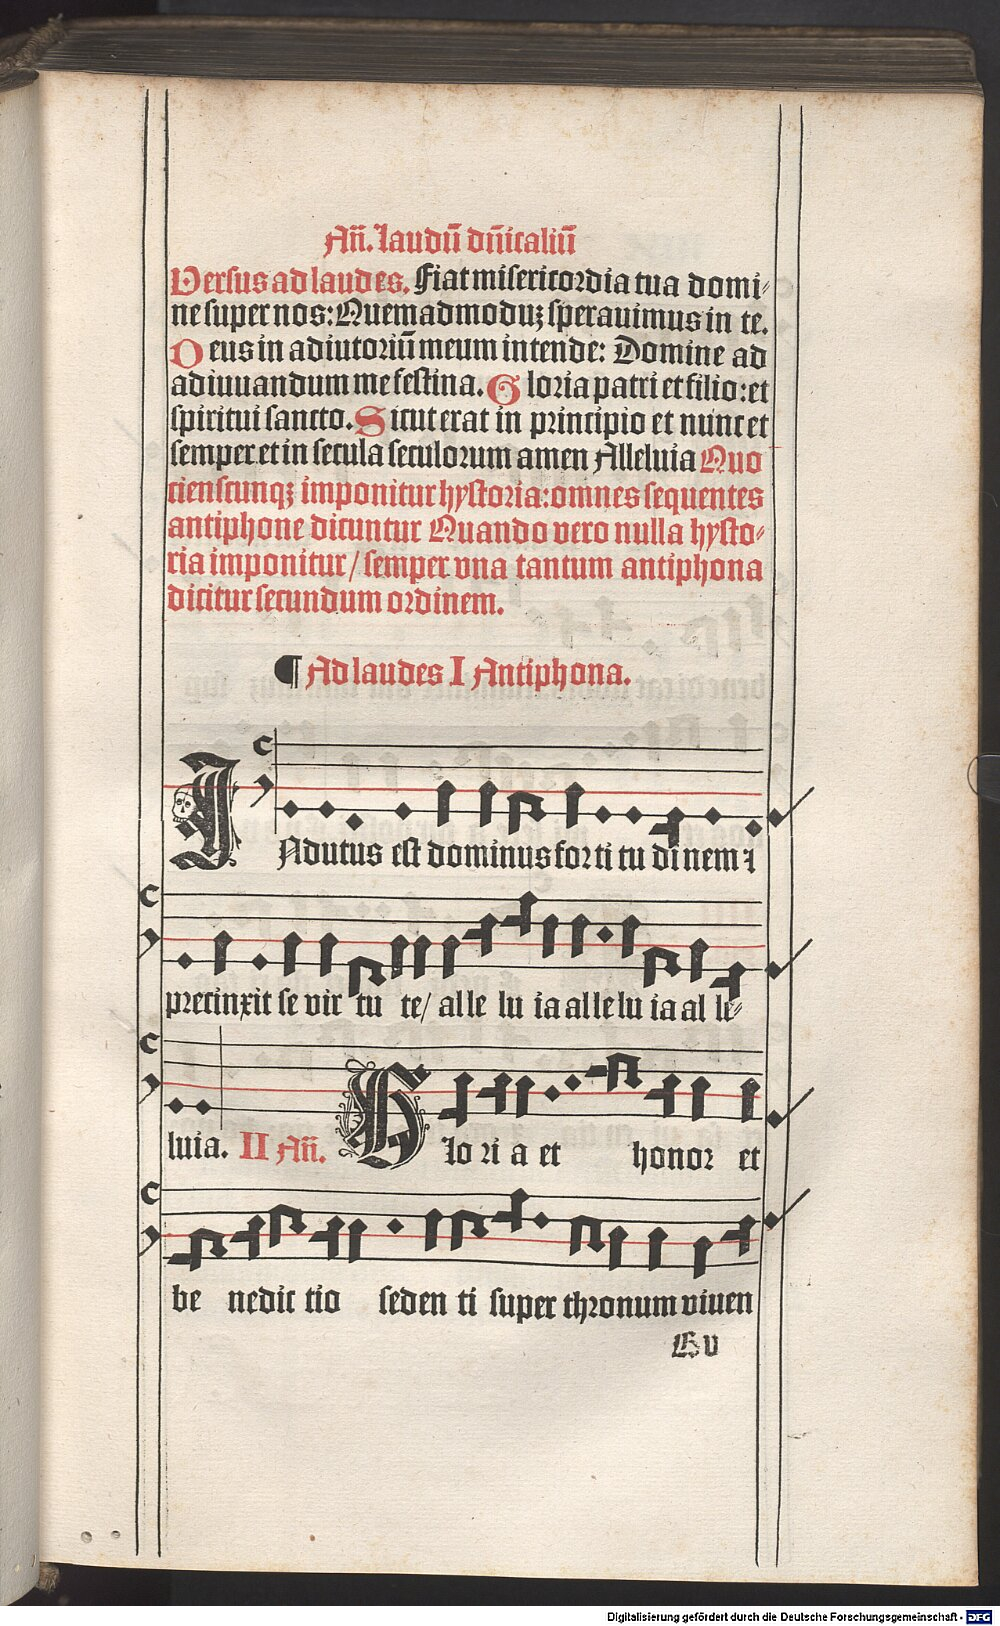 Añ. laudū dñicaliū
Versus ad laudes. Fiat misericordia tua domi-
ne super nos: Quemadmoduꝫ sperauimus in te.
Deus in adiutoriū meum intende: Domine ad
adiuuandum me festina. Gloria patri et filio: et
spiritui sancto. Sicut erat in principio et nunc et
semper et in secula seculorum amen Alleluia Quo
cienscunqꝫ imponitur hystoria: omnes sequentes
antiphone dicuntur Quando vero nulla hysto-
ria imponitur / semper vna tantum antiphona
dicitur secundum ordinem.
¶ Ad laudes I Antiphona.
INdutus est dominus for ti tu di nem ⁊
precinxit se vir tu te/ alle lu ia alle lu ia al le-
luia. II Añ. Glo ri a et honor et
be nedic tio seden ti super thronum viuen
G v
Digitalisierung gefördert durch die Deutsche Forschungsgemeinschaft - DFG